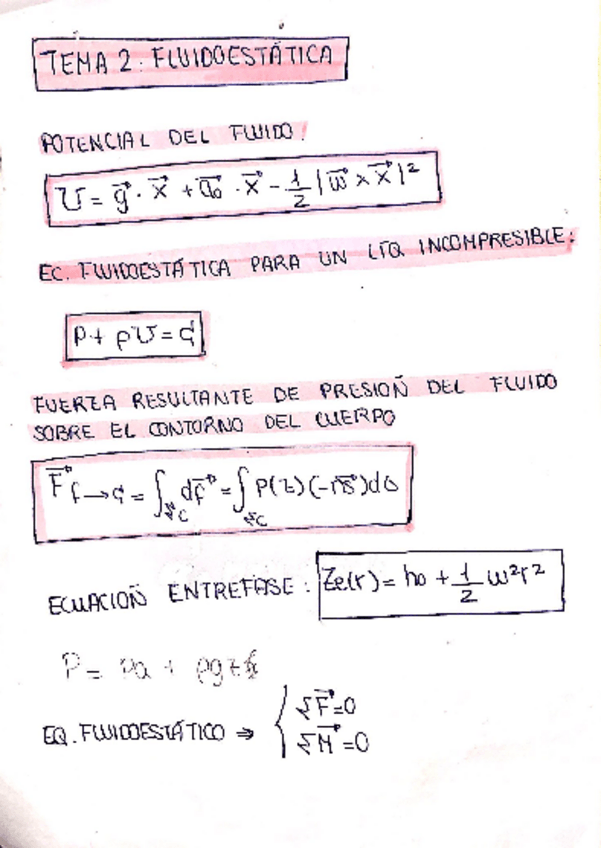 TEMA 2: FLUIDOESTÁTICA
POTENCIAL DEL FLUIDO:
U = g⃗ · x⃗ + a⃗₀ · x⃗ - 1/2 |w⃗ × x⃗|²
EC. FLUIDOESTÁTICA PARA UN LÍQ INCOMPRESIBLE:
P + ρU = C
FUERZA RESULTANTE DE PRESIOÑ DEL FLUIDO
SOBRE EL CONTORNO DEL CUERPO
F⃗ f→c = ∫ df⃗ = ∫ P(z)(-n⃗s)dσ
ECUACIOÑ ENTREFASE: Ze(r) = h₀ + 1/2 w²r²
P = Pa + ρgz
EQ. FLUIDOESTÁTICO ⇒ { ΣF⃗ = 0
ΣM⃗ = 0